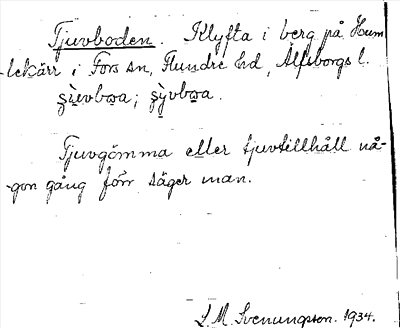 Tjuvboden. Klyfta i berg på Hum-
lekärr i Fors sn, Flundre hd, Älfsborgs l.
Tjuvgömma eller tjuvtillhåll nå-
gon gång förr säger man.
L M Svenungsson. 1934.